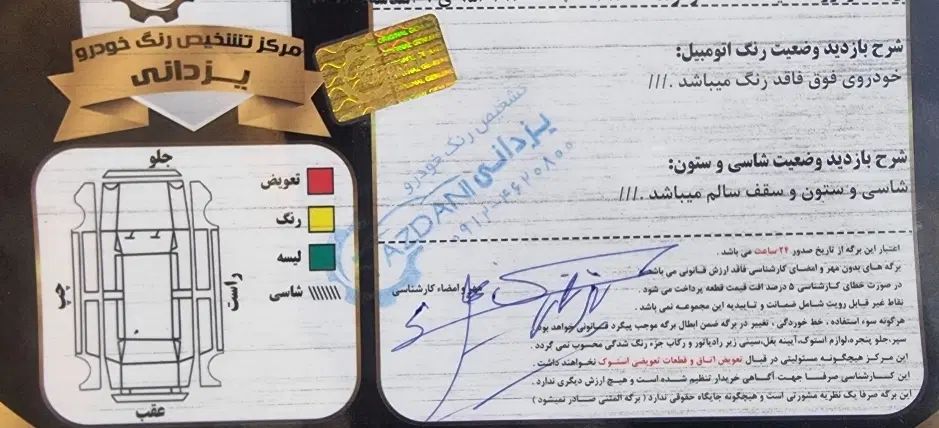 مرکز تشخیص رنگ خودرو
یزدانی
شرح بازدید وضعیت رنگ اتومبیل:
خودروی فوق فاقد رنگ میباشد .///
شرح بازدید وضعیت شاسی و ستون:
شاسی و ستون و سقف سالم میباشد .///
تشخیص رنگ خودرو
یزدانی
AZDANI
جلو
تعویض
رنگ
لیسه
شاسی
چپ
راست
عقب
مهر و امضاء کارشناسی
اعتبار این برگه از تاریخ صدور ۲۴ ساعت می باشد .
برگه های بدون مهر و امضای کارشناسی فاقد ارزش قانونی می باشد
در صورت خطای کارشناسی ۵ درصد افت قیمت قطعه پرداخت می شود .
نقاط غیر قابل رویت شامل ضمانت و تاییدیه این مجموعه نمی باشد .
هرگونه سوء استفاده ، خط خوردگی ، تغییر در برگه ضمن ابطال برگه موجب پیگرد قانونی خواهد بود
سپر،جلو پنجره،لوازم استوک،آیینه بغل،سینی زیر رادیاتور و رکاب جزء رنگ شدگی محسوب نمی گردد .
این مرکز هیچگونه مسئولیتی در قبال تعویض اتاق و قطعات تعویضی استوک نخواهند داشت .
این کارشناسی صرفا جهت آگاهی خریدار تنظیم شده است و هیچ ارزش دیگری ندارد .
این برگه صرفا یک نظریه مشورتی است و هیچگونه جایگاه حقوقی ندارد ( برگه المثنی صادر نمیشود )